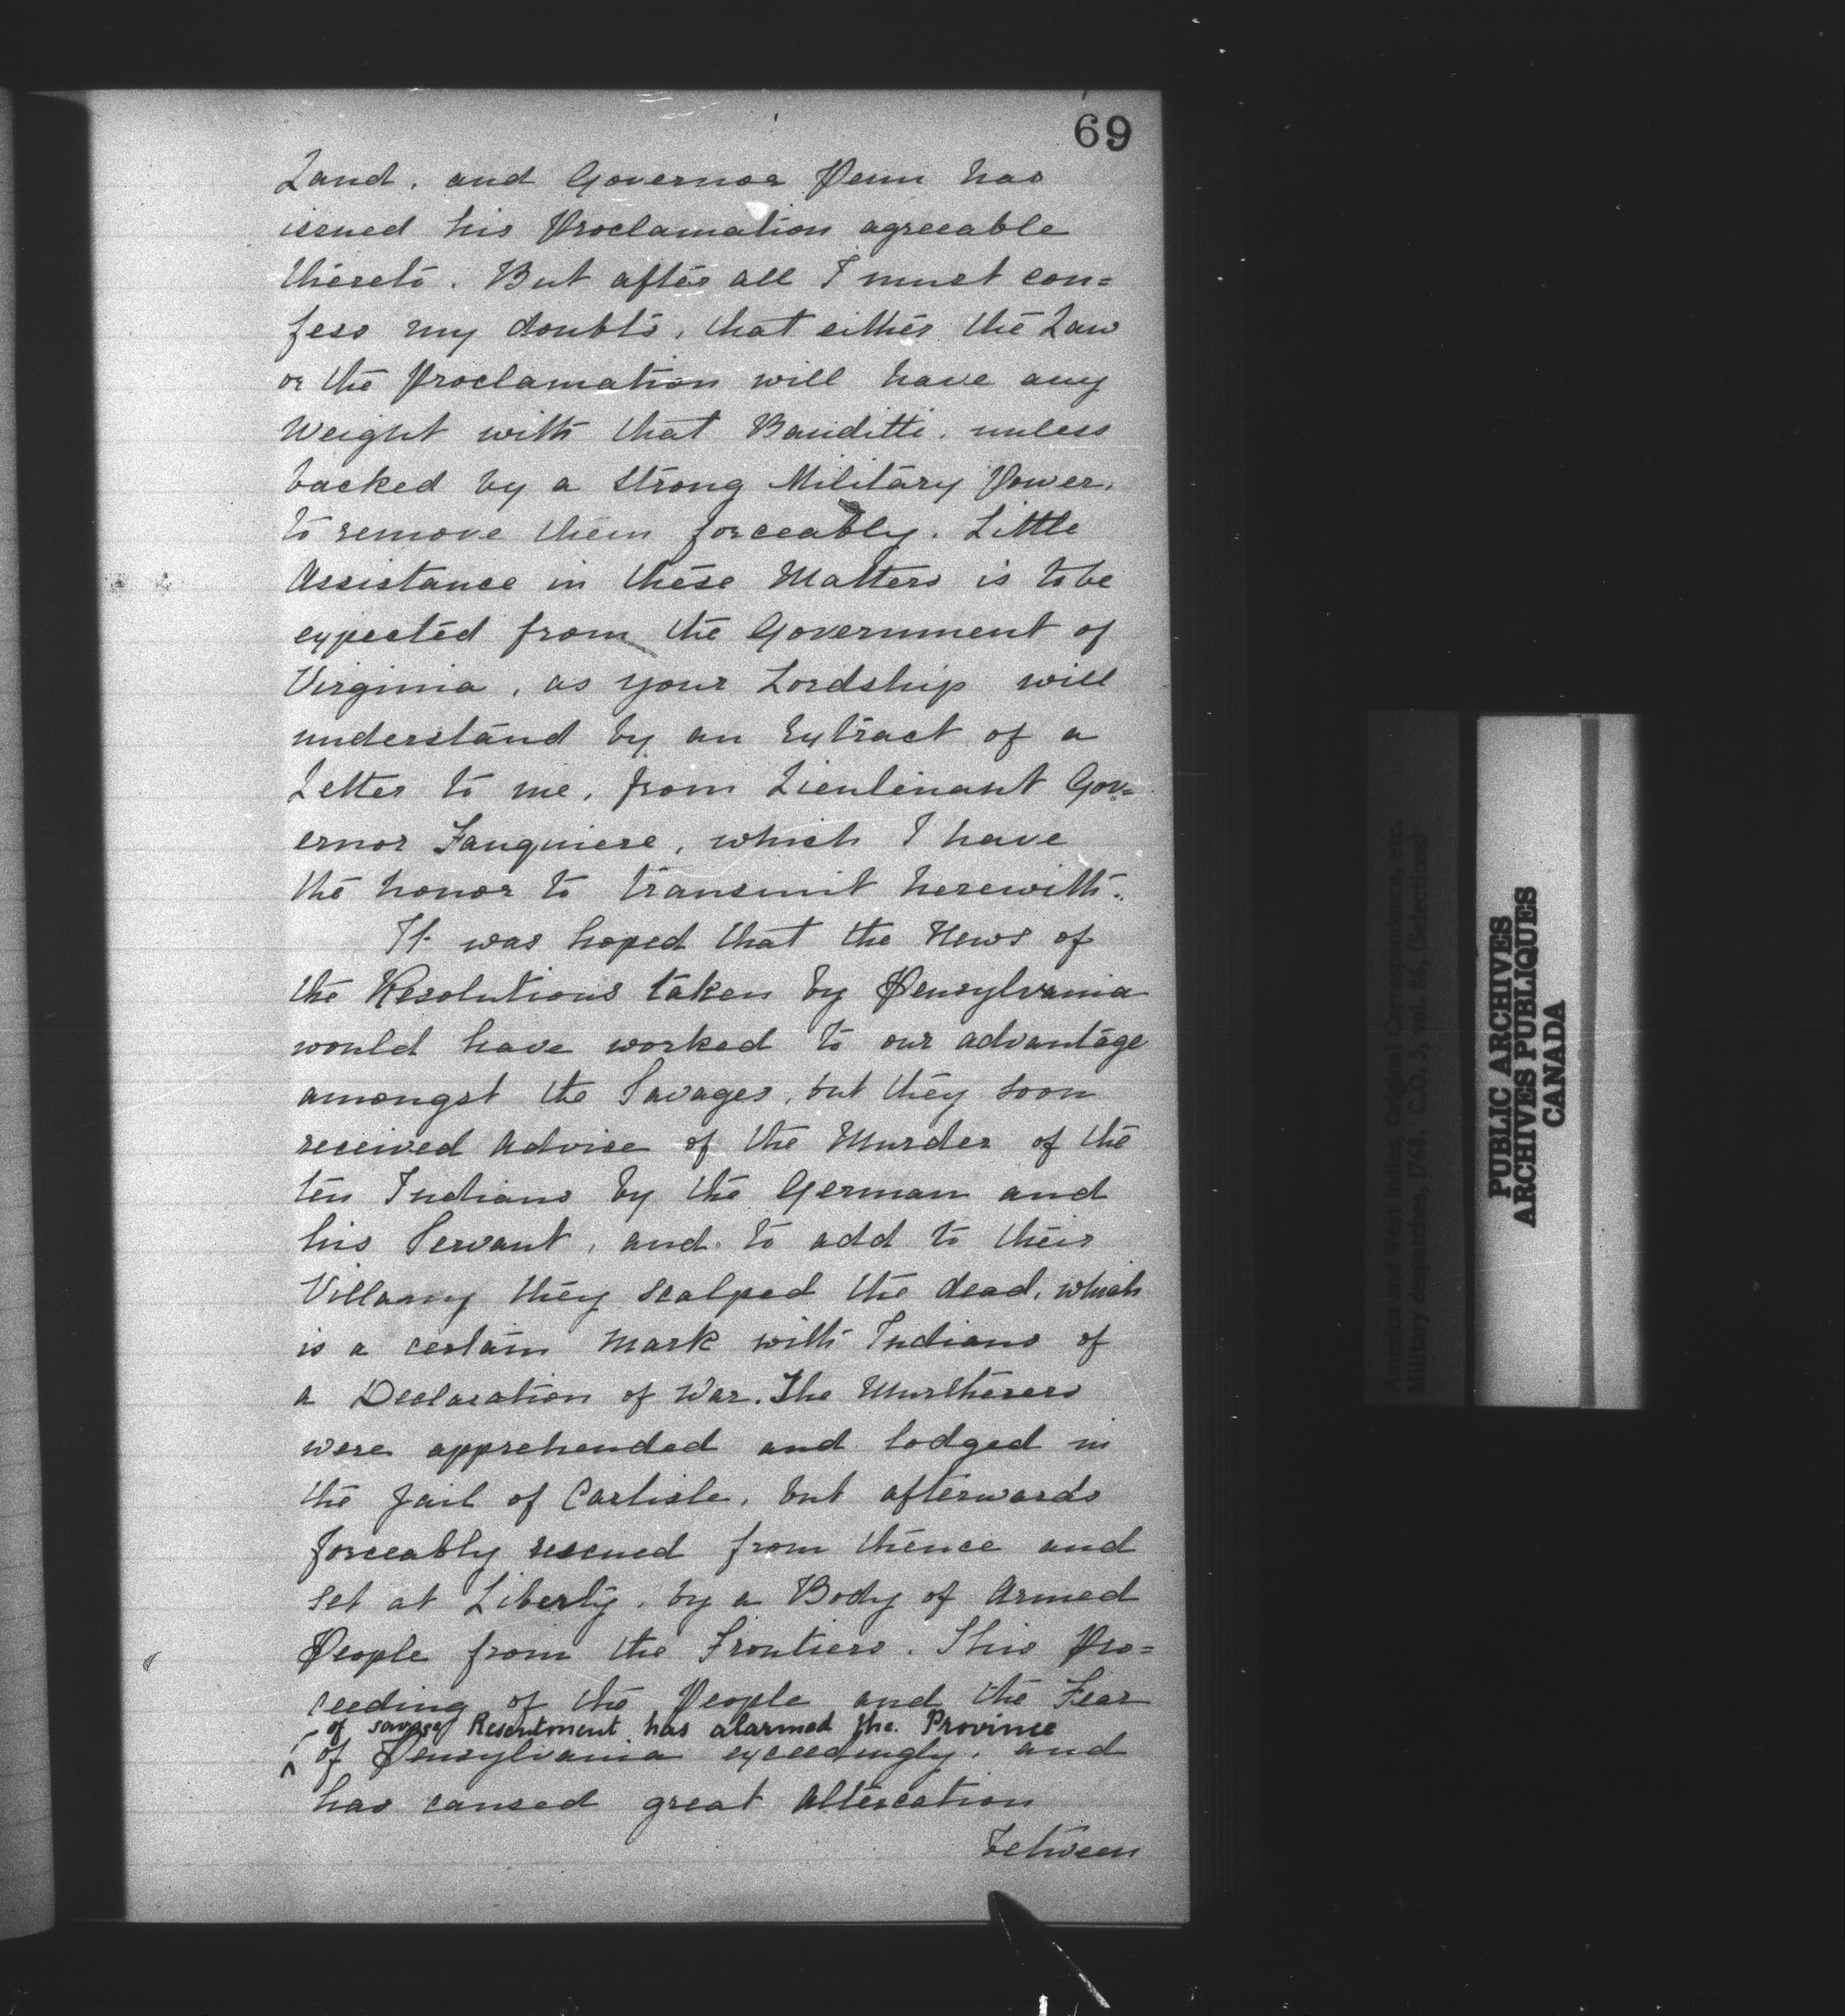 69
Land, and Governor Penn has
issued his Proclamation agreeable
thereto. But after all I must con=
fess my doubts, that either the Law
or the Proclamation will have any
Weight with that Banditti, unless
backed by a strong Military Power,
to remove them forceably. Little
Assistance in these Matters is to be
expected from the Government of
Virginia, as your Lordship will
understand by an Extract of a
Letter to me, from Lieutenant Gov=
ernor Fauquiere, which I have
the honor to transmit herewith.
It was hoped that the News of
the Resolutions taken by Pensylvania
would have worked to our advantage
amongst the Savages, but they soon
received Advice of the Murder of the
ten Indians by the German and
his Servant, and to add to their
Villany they scalped the dead, which
is a certain Mark with Indians of
a Declaration of War. The Murtherers
were apprehended and lodged in
the Jail of Carlisle, but afterwards
forceably rescued from thence and
set at Liberty, by a Body of Armed
People from the Frontiers. This Pro=
ceeding of the People and the Fear
of savage Resentment has alarmed the Province
of Pensylvania exceedingly, and
has caused great Altercation
between
PUBLIC ARCHIVES
ARCHIVES PUBLIQUES
CANADA
America and West Indies, Original Correspondence, etc.
Military despatches, 1768. C.O. 5, vol. 86, (Selection)